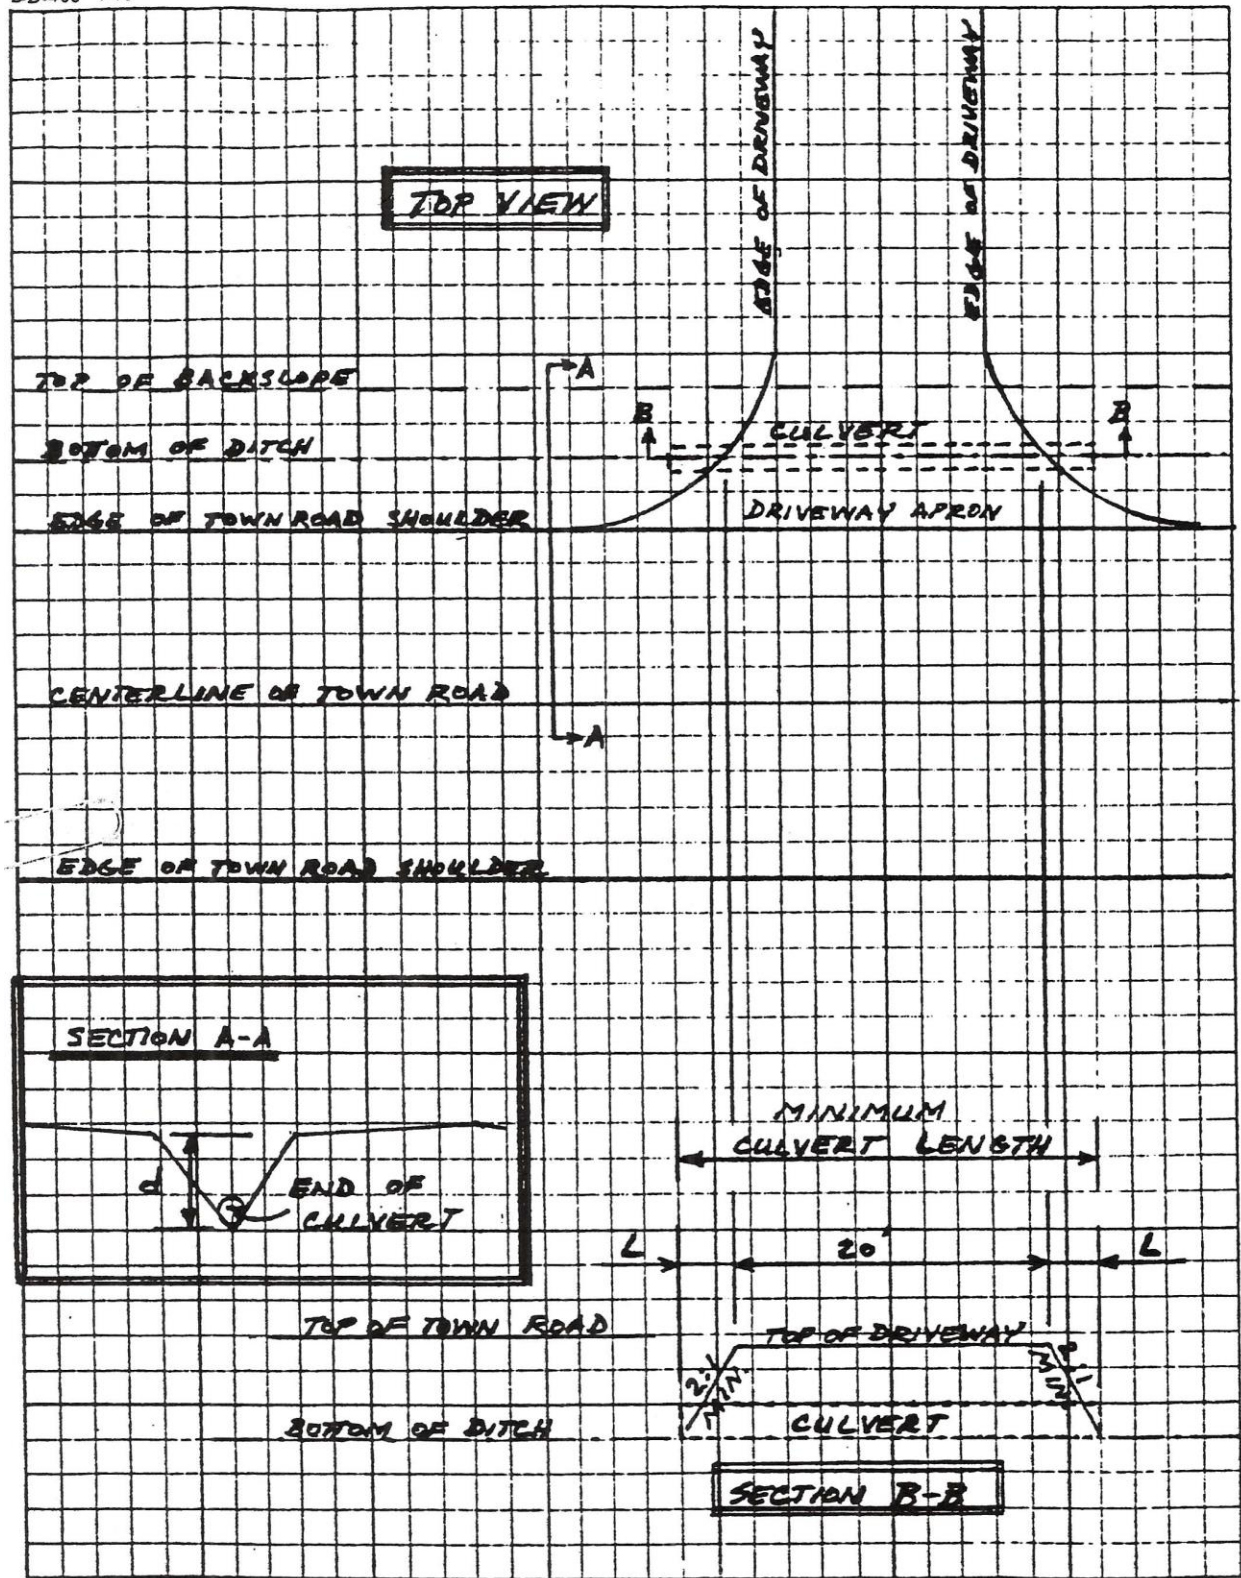 TOP VIEW
EDGE OF DRIVEWAY
EDGE OF DRIVEWAY
TOP OF BACKSLOPE
A
B
B
CULVERT
BOTTOM OF DITCH
EDGE OF TOWN ROAD SHOULDER
DRIVEWAY APRON
CENTERLINE OF TOWN ROAD
A
EDGE OF TOWN ROAD SHOULDER
SECTION A-A
d
END OF
CULVERT
MINIMUM
CULVERT LENGTH
L
20'
L
TOP OF TOWN ROAD
TOP OF DRIVEWAY
2:1
MIN.
2:1
MIN
BOTTOM OF DITCH
CULVERT
SECTION B-B